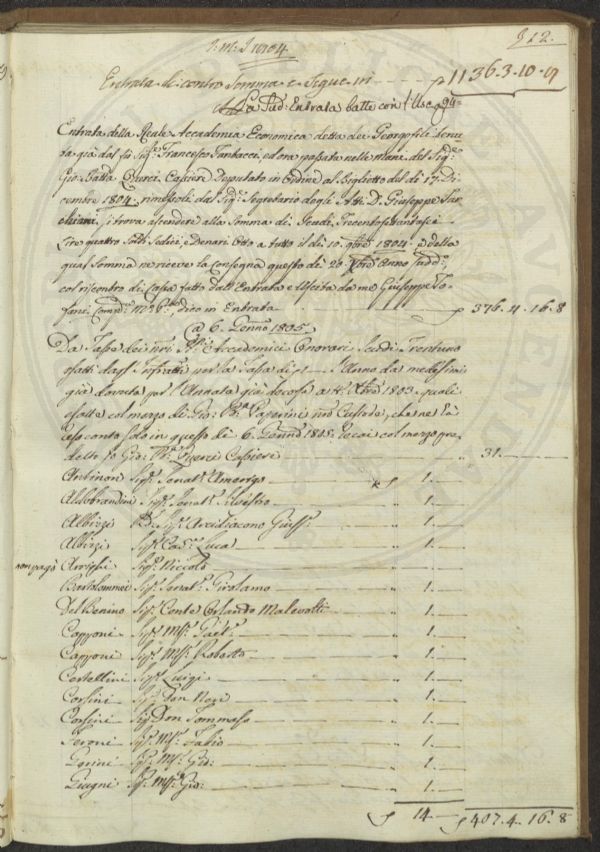 J: M: J 1804.
Entrata di contro Somma e Segue in - - - - 1136.3.10.
La Sud: Entrata batte con l'Usc. a 94=
Entrata della Reale Accademia Economica detta dei Georgofili tenu-
ta già dal fu Sig.r Francesco Fantacci, ed ora passata nelle mani del Sig.re
Gio: Batta Querci, Cassiere Deputato in Ordine al Biglietto del dì 17. Di-
cembre 1804. rimessoli dal Sig.r Segretario degli Atti D. Giuseppe Sar-
chiani, si trova ascendere alla Somma di Scudi Trecentosettantasei
Lire quattro Soldi Sedici, e Denari Otto a tutto il dì 10. 9bre 1804. e della
qual Somma ne riceve la consegna questo dì 20. Xbre Anno Sudd.o
col riscontro di Cassa fatto dall'Entrata e Uscita da me Giuseppe To-
fani Comp.a dico in Entrata 376.4.16.8
@ 6. Genn.o 1805.
Da Tasse dei nri SS.ri Accademici Onorari Scudi Trentuno
esatti dagl'Infratti per la Tassa di 1 - l'Anno da medesimi
già dovuta per l'Annata già decorsa a tt.o Xbre 1803. quali
esatte col mezzo di Gio: Ba. Pepirini nro Custode, che ne fa-
ceva conto solo in questo dì 6. Genn.o 1805. recai col mezzo pre-
detto Gio: Ba. Querci Cassiere " 31.
Antinori Sig.r Senat.r Amerigo 1.
Aldobrandini Sig.r Senat.r Silvestro " 1.
Albizzi Sig.r Arcidiacono Gius.e " 1.
Albizzi Sig.r Cav.r Luca " 1.
non pagò Arrighi Sig.r Niccolò "
Bartolommei Sig.r Senat.r Girolamo " 1.
Del Benino Sig.r Conte Orlando Malevolti " 1.
Capponi Sig.r M.se Gaet.o " 1.
Capponi Sig.r M.se Roberto " 1.
Castellini Sig.r Luigi " 1.
Corsini Sig.r Don Neri " 1.
Corsini Sig.r Don Tommaso " 1.
Feroni Sig.r M.se Fabio " 1.
Gerini Sig.r M.se Gio: " 1.
Giugni Sig.r M.se Gio: " 1.
14. 407.4.16.8